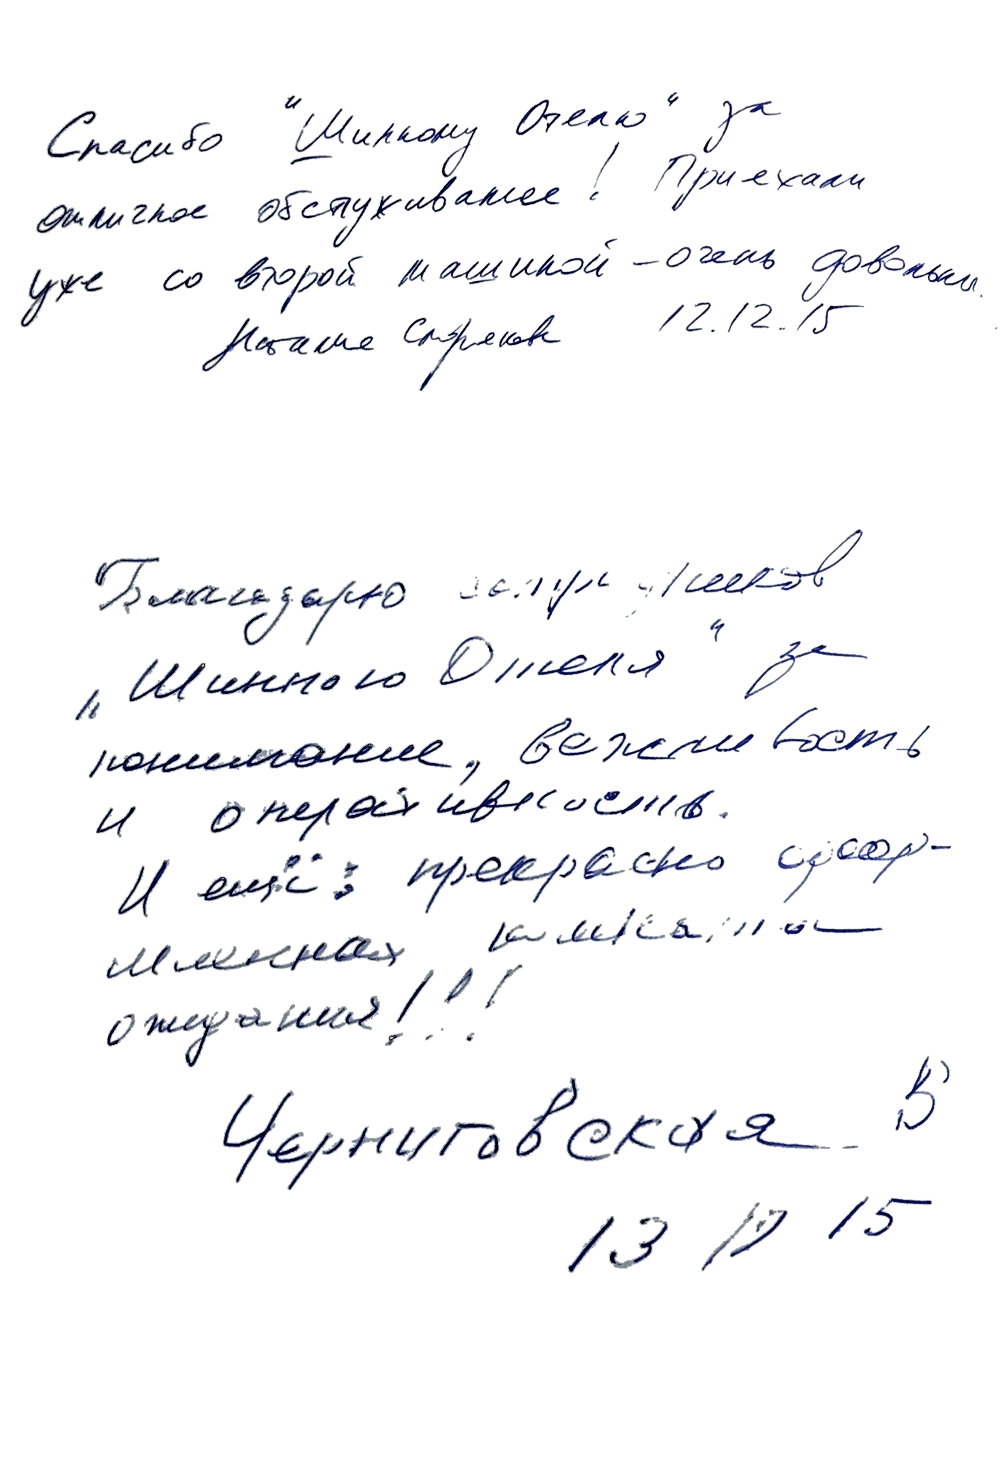 Спасибо "Шинному Отелю" за
отличное обслуживание! Приехали
уже со второй машиной – очень довольны.
12.12.15
"Благодарю сотрудников
„Шинного Отеля" за
понимание, вежливость
и оперативность.
И ещё: прекрасно офор-
мленная комната
ожидания!!!
Черниговская В
13 15